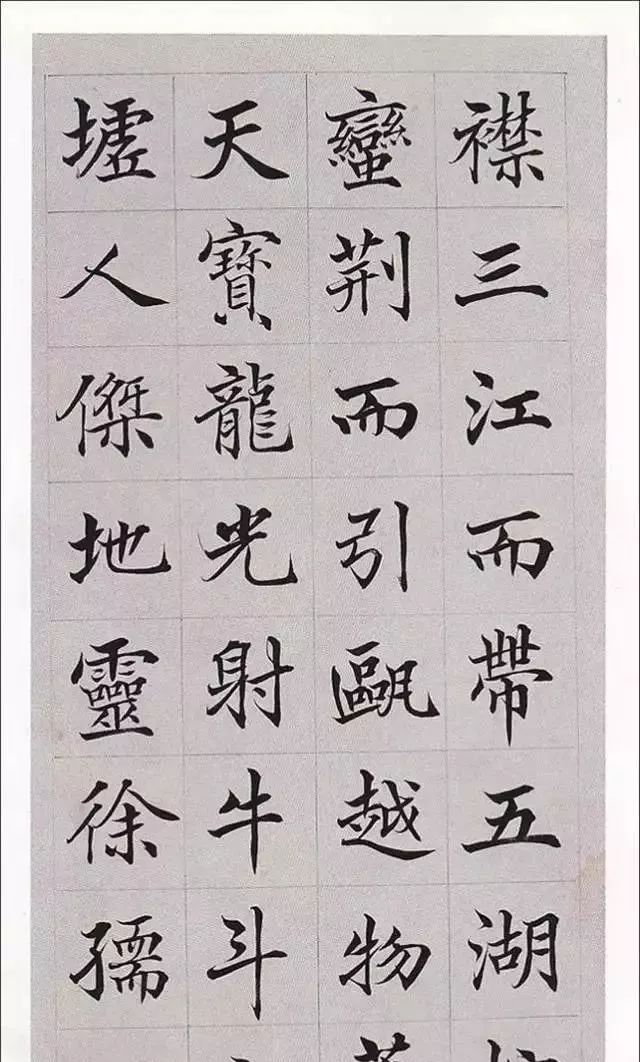 襟三江而帶五湖
蠻荆而引甌越物
天寶龍光射牛斗
墟人傑地靈徐孺